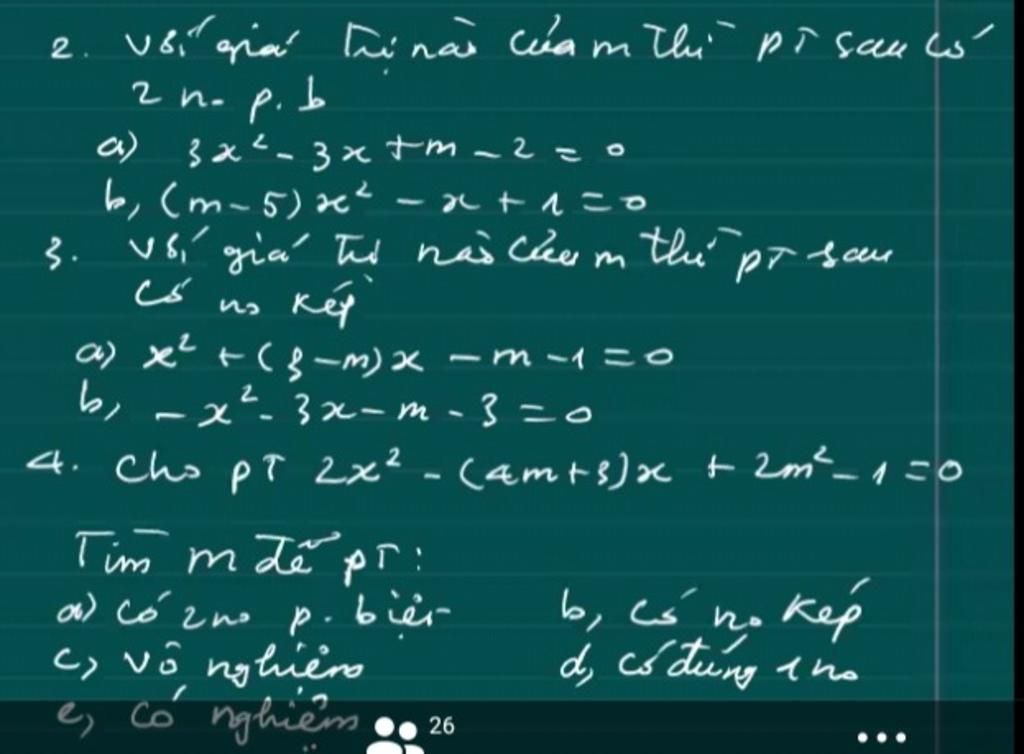 2. Với giá trị nào của m thì pT sau có
2 n- p. b
a) 3x² - 3x + m - 2 = 0
b, (m - 5)x² - x + 1 = 0
3. Với giá trị nào của m thì pT sau
có no kép
a) x² + (3 - m)x - m - 1 = 0
b, - x² - 3x - m - 3 = 0
4. Cho pT 2x² - (4m + 3)x + 2m² - 1 = 0
Tìm m để pT:
a) có 2 no p. biệt b, có no kép
c, vô nghiệm d, có đúng 1 no
e, có nghiệm
26